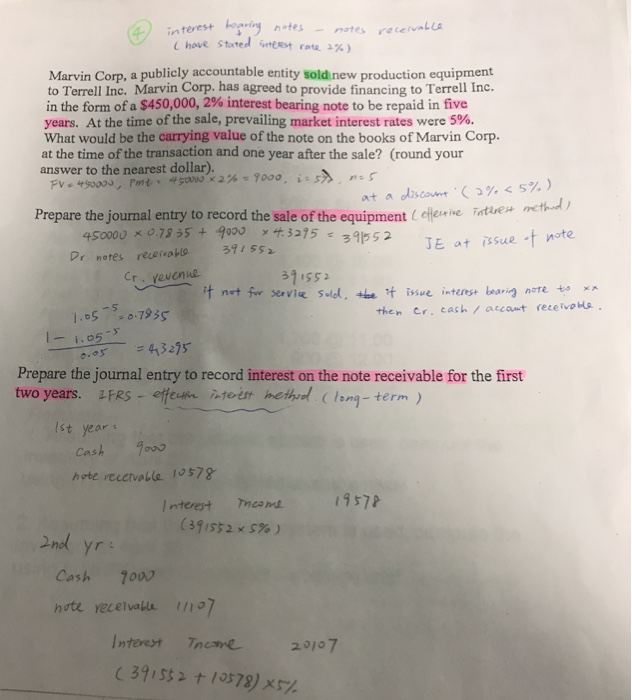 4 interest bearing notes - notes receivable
(have stated interest rate 2%)
Marvin Corp, a publicly accountable entity sold new production equipment
to Terrell Inc. Marvin Corp. has agreed to provide financing to Terrell Inc.
in the form of a $450,000, 2% interest bearing note to be repaid in five
years. At the time of the sale, prevailing market interest rates were 5%.
What would be the carrying value of the note on the books of Marvin Corp.
at the time of the transaction and one year after the sale? (round your
answer to the nearest dollar).
FV = 450000, Pmt = 450000 × 2% = 9000, i = 5%, n = 5
at a discount (2% < 5%)
Prepare the journal entry to record the sale of the equipment (effective interest method)
450000 × 0.7835 + 9000 × 4.3295 = 391552
JE at issue of note
Dr notes receivable 391552
Cr. revenue 391552
if not for service sold, if issue interest bearing note to xx
then cr. cash / account receivable.
1.05^-5 = 0.7835
1 - 1.05^-5 / 0.05 = 4.3295
Prepare the journal entry to record interest on the note receivable for the first
two years. IFRS - effective interest method (long-term)
1st year:
Cash 9000
note receivable 10578
Interest Income 19578
(391552 × 5%)
2nd yr:
Cash 9000
note receivable 11107
Interest Income 20107
(391552 + 10578) × 5%